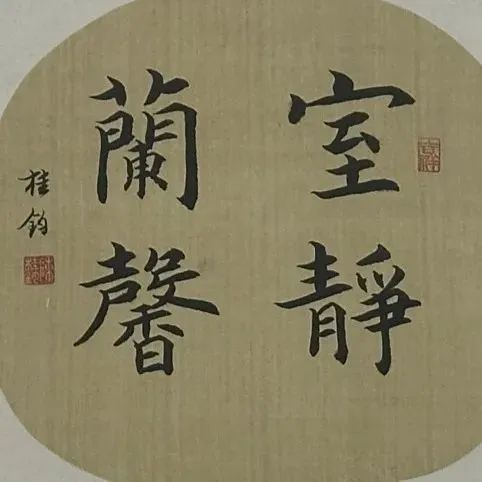 室靜
蘭馨
桂鈞